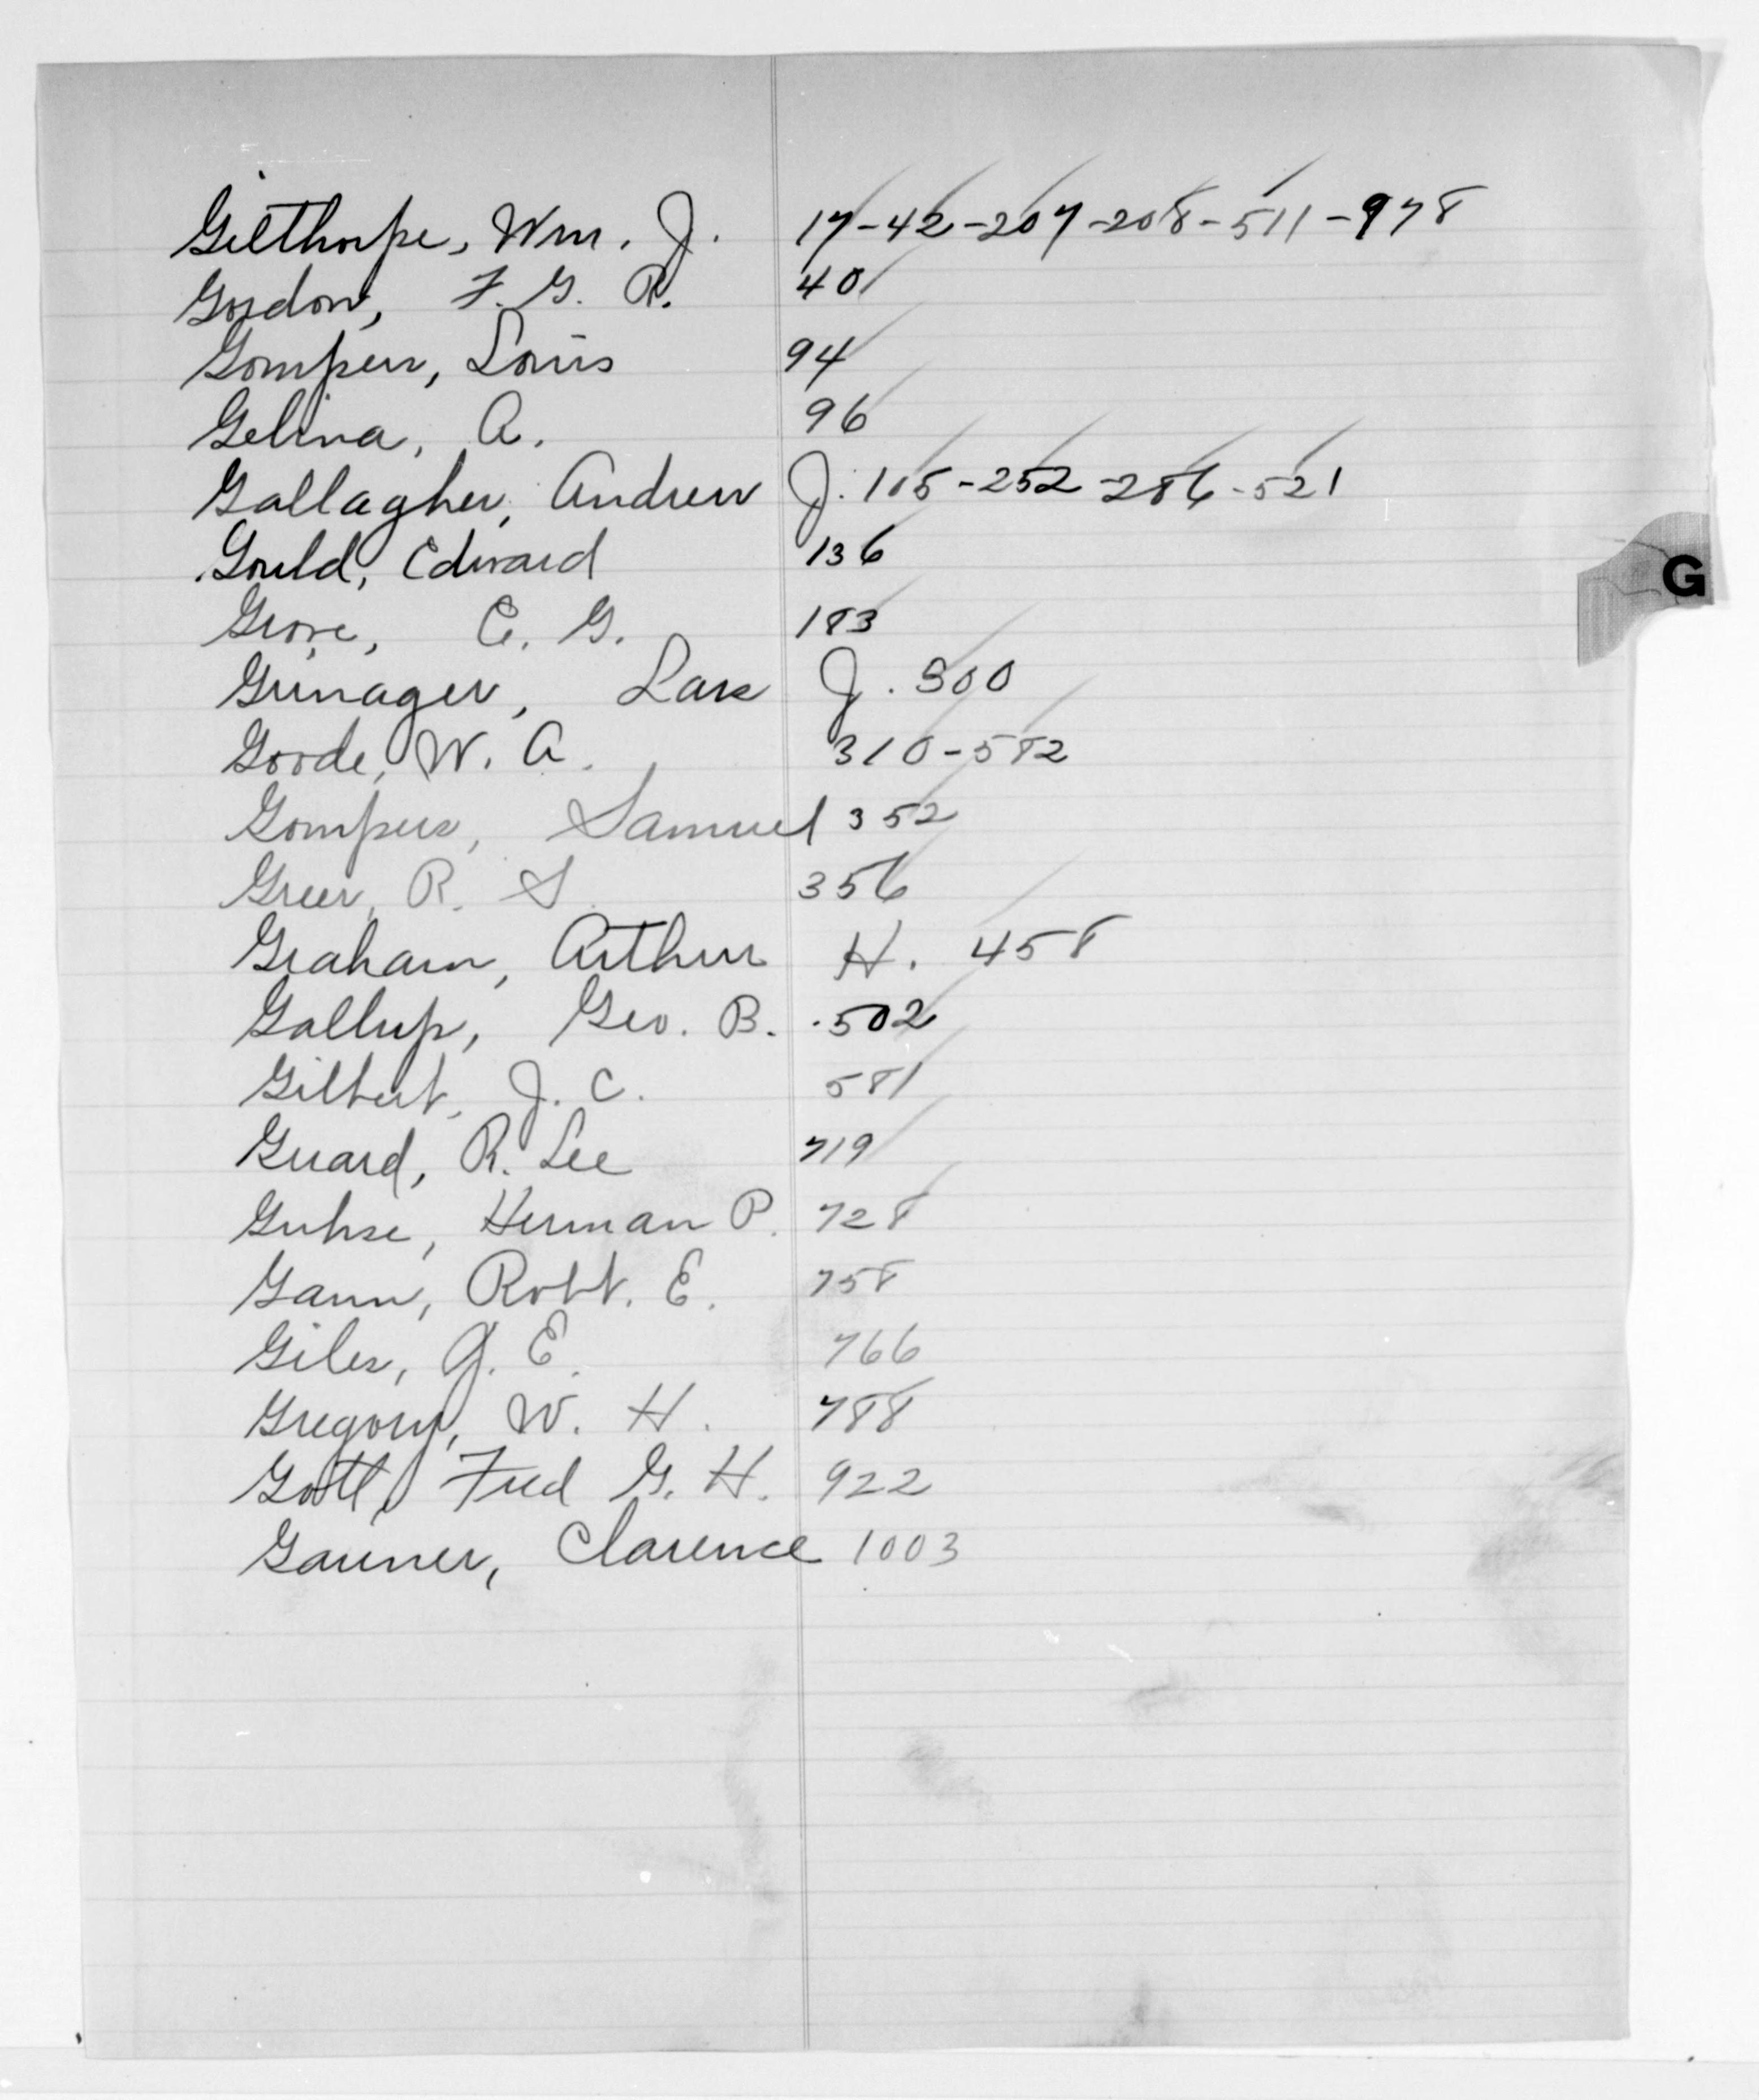 Gilthorpe, Wm. J. 17-42-207-208-511-978
Gordon, F. G. R. 401
Gompers, Louis 94
Gelina, A. 96
Gallagher, Andrew J. 105-252-286-521
Gould, Edward 136
G
Grove, C. G. 183
Grinager, Lars J. 300
Goode, W. A. 310-582
Gompers, Samuel 352
Greer, R. S. 356
Graham, Arthur H. 458
Gallup, Geo. B. 502
Gilbert, J. C. 581
Guard, R. Lee 719
Guhse, Herman P. 728
Gann, Robt. E. 758
Giles, G. E. 766
Gregory, W. H. 788
Gott, Fred G. H. 922
Clarence 1003